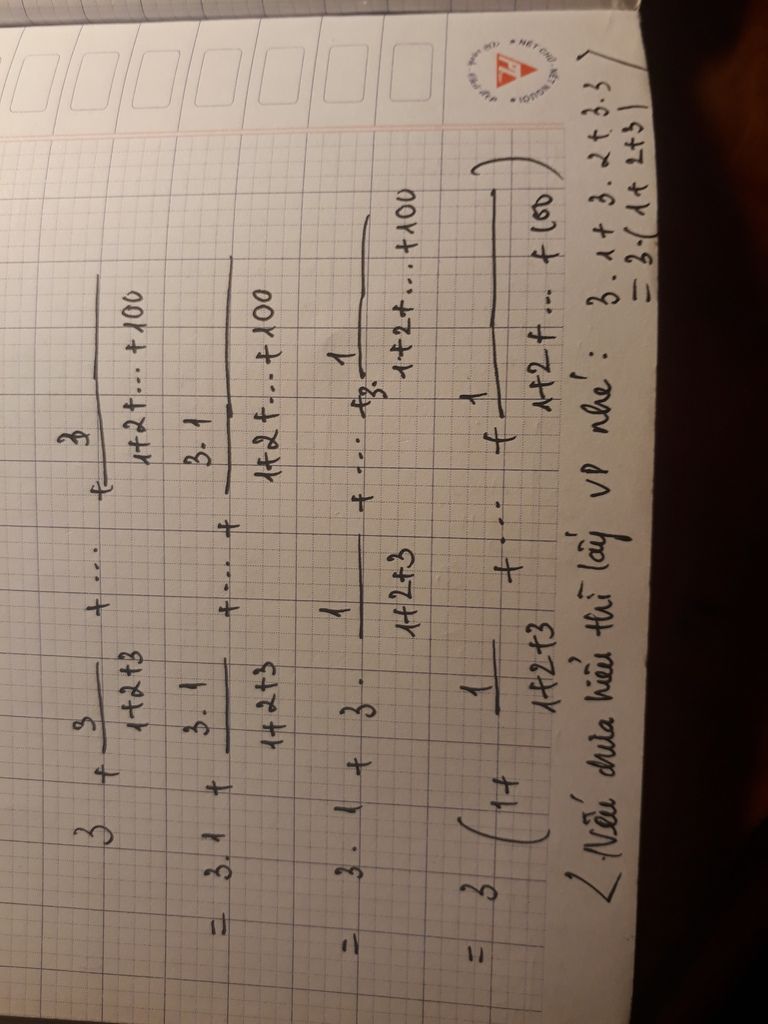 3 + 3/(1+2+3) + ... + 3/(1+2+...+100)
= 3.1 + 3.1/(1+2+3) + ... + 3.1/(1+2+...+100)
= 3.1 + 3. 1/(1+2+3) + ... + 3. 1/(1+2+...+100)
= 3 (1+ 1/(1+2+3) + ... + 1/(1+2+...+100))
(Nếu chưa hiểu thì lấy VP nhé: 3.1 + 3.2 + 3.3
= 3.(1+2+3))
PL
NÉT CHỮ - NẾT NGƯỜI